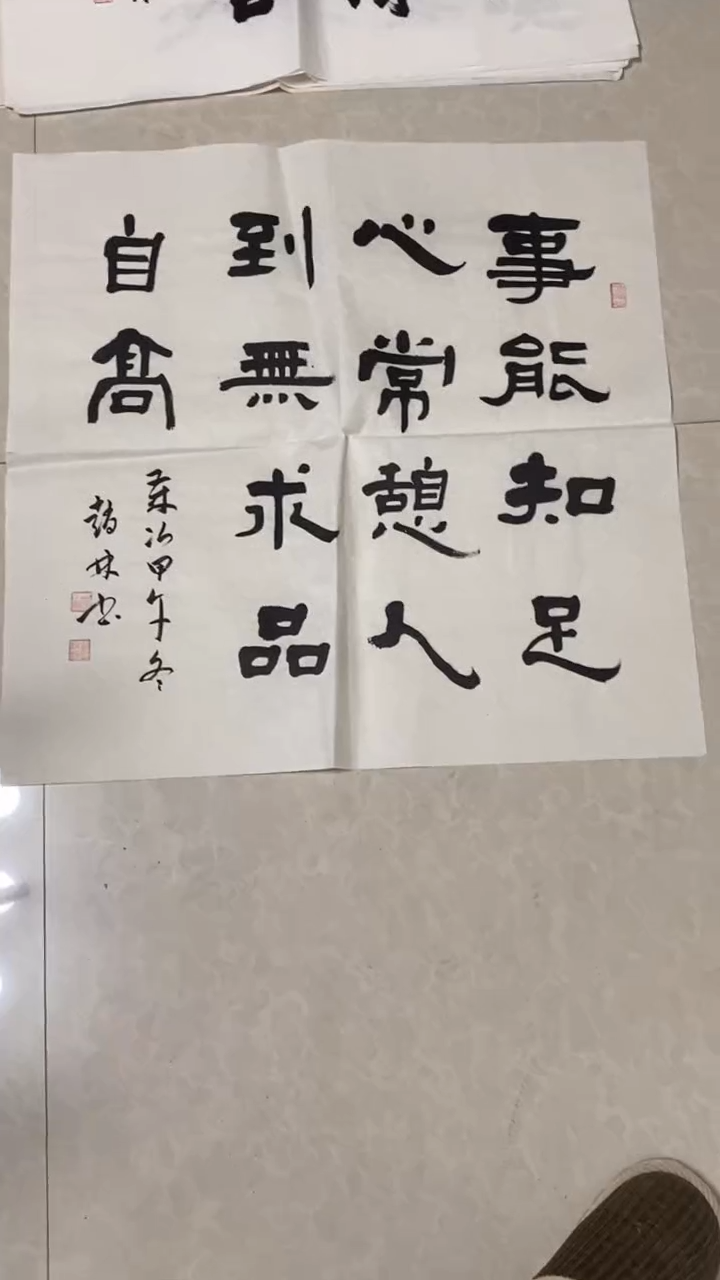 事能知足
心常憩人
到無求品
自高
歲次甲午冬
林書